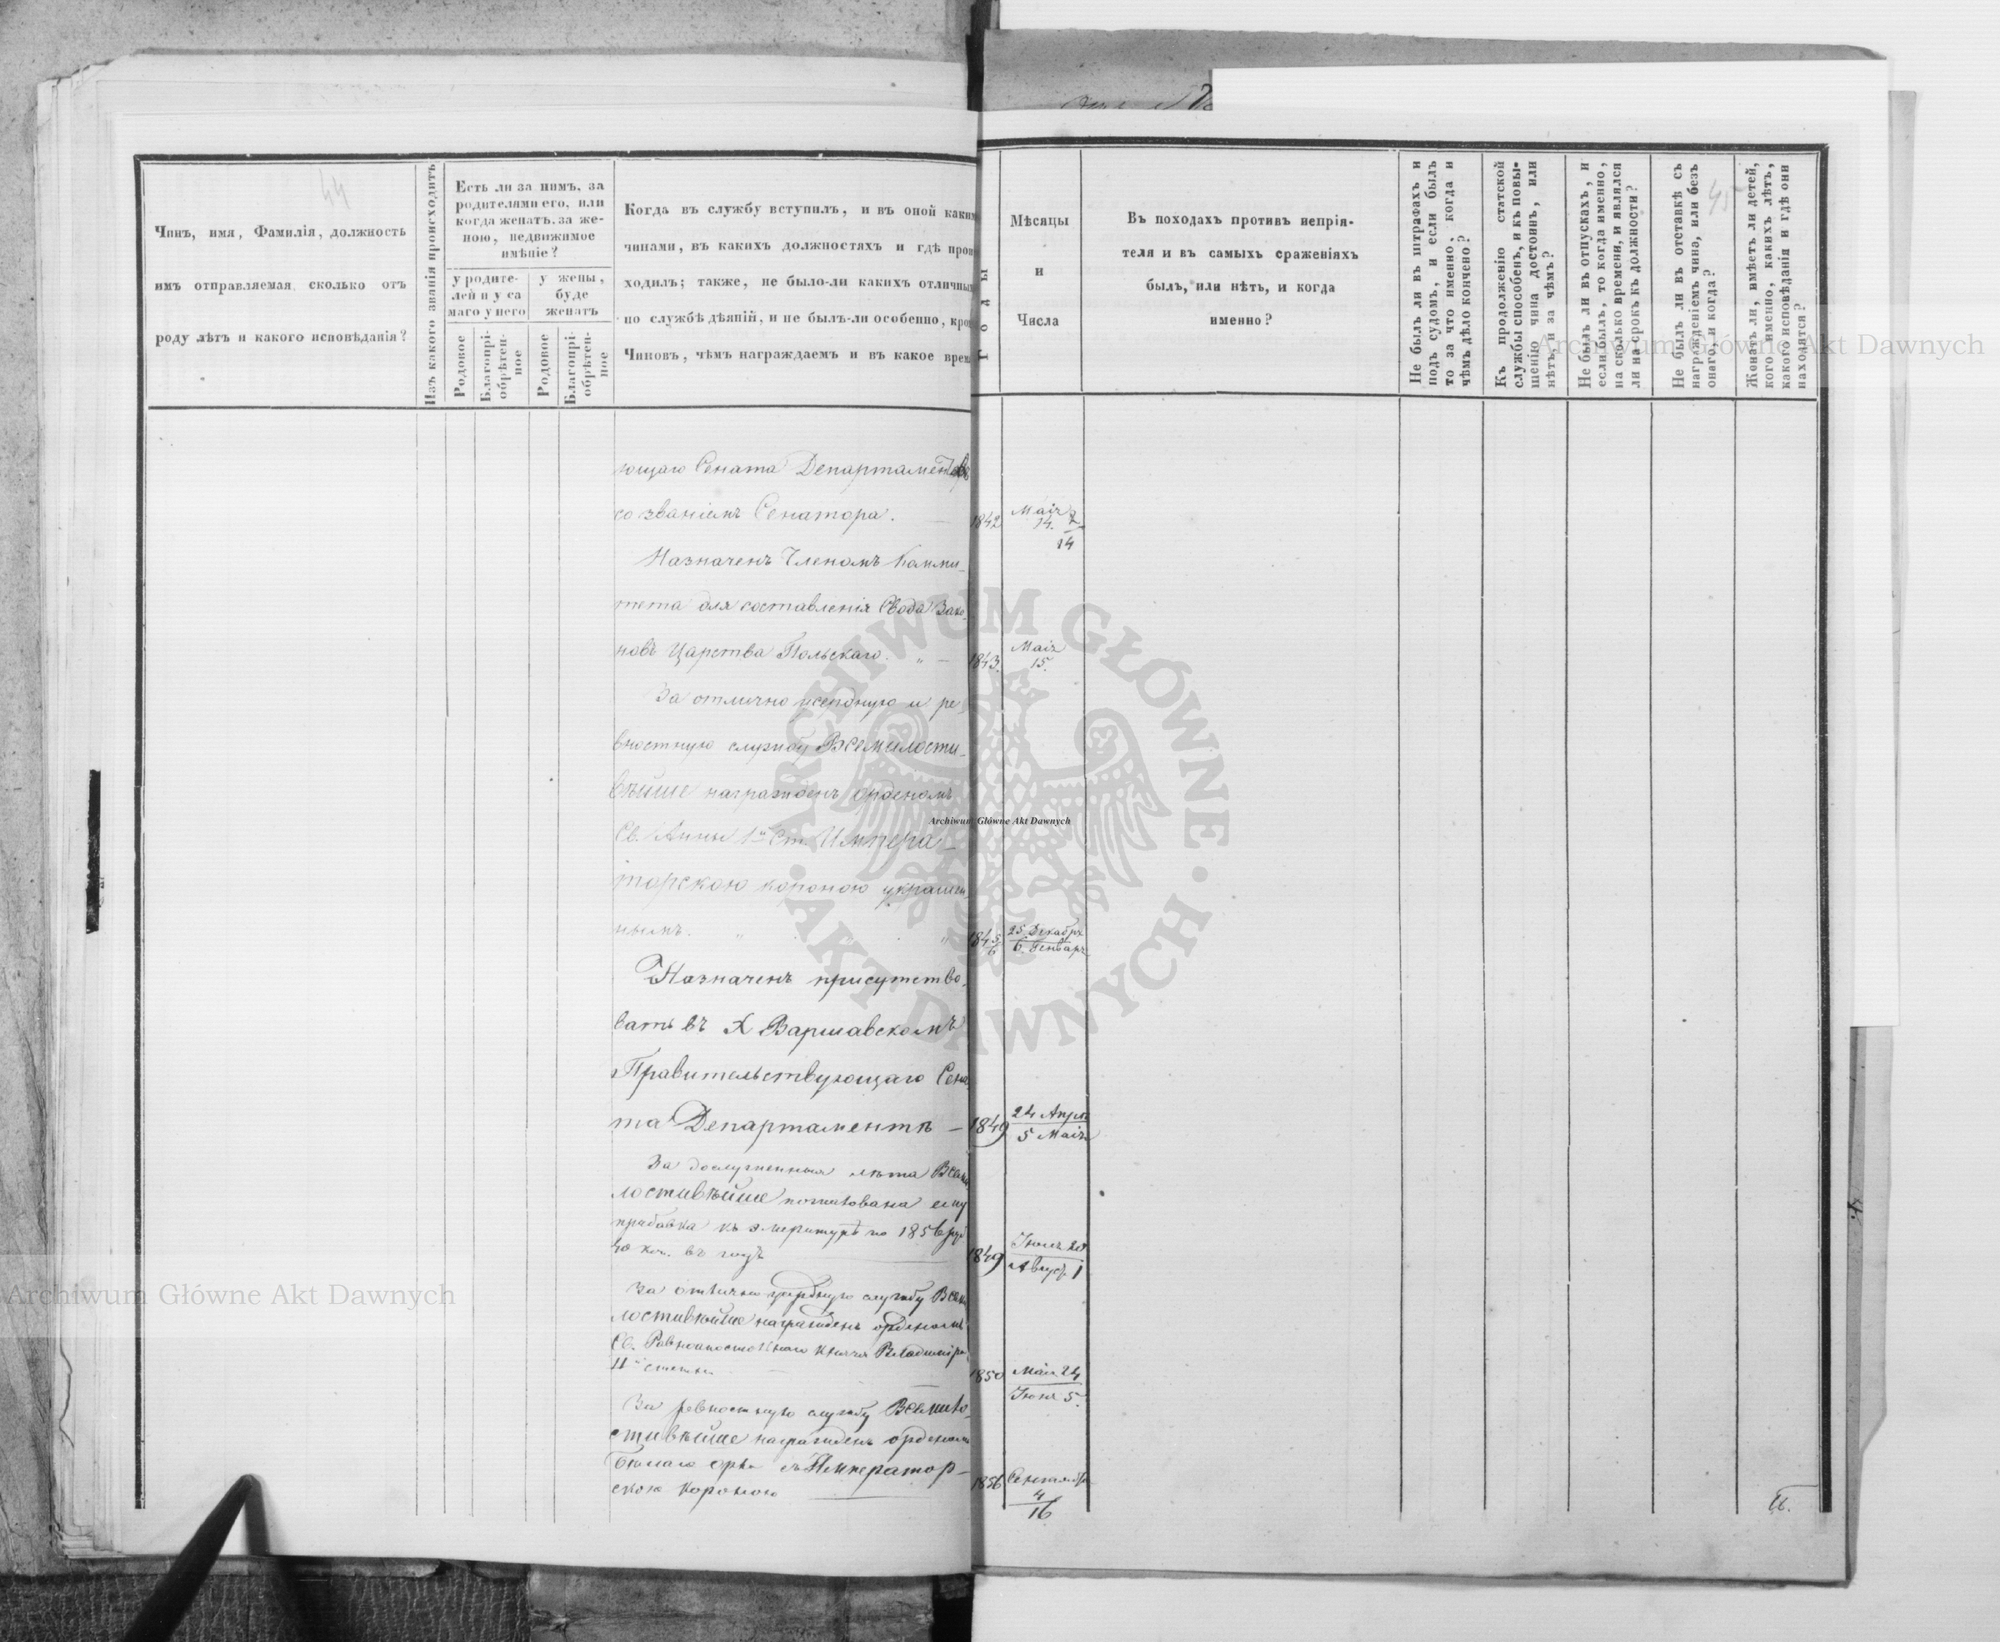 44
Чинъ, имя, Фамилія, должность
имъ отправляемая, сколько отъ
роду лѣтъ и какого исповѣданія?
Изъ какого званія происходитъ
Есть ли за нимъ, за
родителями его, или
когда женатъ, за же-
ною, недвижимое
имѣніе?
у родите-
лей и у са
маго у него
у жены,
буде
женатъ
Родовое
Благопрі-
обрѣтен-
ное
Родовое
Благопрі-
обрѣтен-
ное
Когда въ службу вступилъ, и въ оной каким
чинами, въ какихъ должностяхъ и гдѣ прои
ходилъ; также, не было-ли какихъ отличны
по службѣ дѣяній, и не былъ-ли особенно, кро
Чиновъ, чѣмъ награждаемъ и въ какое врем
Годы
Мѣсяцы
и
Числа
Въ походахъ противъ непрія-
теля и въ самыхъ сраженіяхъ
былъ, или нѣтъ, и когда
именно?
Не былъ ли въ штрафахъ и
подъ судомъ, и если былъ
то за что именно, когда и
чѣмъ дѣло кончено?
Къ продолженію статской
службы способенъ, и къ повы-
шенію чина достоинъ, или
нѣтъ, и за чѣмъ?
Не былъ ли въ отпускахъ, и
если былъ, то когда именно,
на сколько времени, и явился
ли на срокъ къ должности?
Не былъ ли въ отставкѣ съ
награжденіемъ чина, или безъ
онаго, и когда?
45
Женатъ ли, имѣетъ ли дѣтей,
кого именно, какихъ лѣтъ,
какого исповѣданія и гдѣ они
находятся?
ющаго Сената Департаментовъ
со званіемъ Сенатора. 1842 Маія 14. 2/14
Назначенъ Членомъ Комми-
тета для составленія Свода Зако-
новъ Царства Польскаго. " — 1843. Маія 15.
За отлично усердную и ре-
вностную службу Всемилости-
вѣйше награжденъ орденомъ
Св. Анны 1й Ст. Импера-
торскою короною украшен-
нымъ. " " 1845/6 25 Декабря/6 Генваря
Назначенъ присутство-
вать въ X Варшавскомъ
Правительствующаго Сена-
та Департаментѣ — 1849 24 Апрѣля/5 Маія
За дослуженныя лѣта Всеми
лостивѣйше пожалована ему
прибавка къ эмеритурѣ по 185 руб
40 коп. въ годъ 1849 Іюля 20/Август. 1
За отлично усердную службу Всеми
лостивѣйше награжденъ орденомъ
Св. Равноапостольнаго Князя Владиміра
IIй степени 1850 Маія 24/Іюня 5.
За ревностную службу Всемило-
стивѣйше награжденъ орденомъ
Бѣлаго орла съ Император-
скою короною 1856 Сентября 4/16
Archiwum Główne Akt Dawnych
ARCHIWUM GŁÓWNE · AKT DAWNYCH ·
Archiwum Główne Akt Dawnych
Archiwum Główne Akt Dawnych